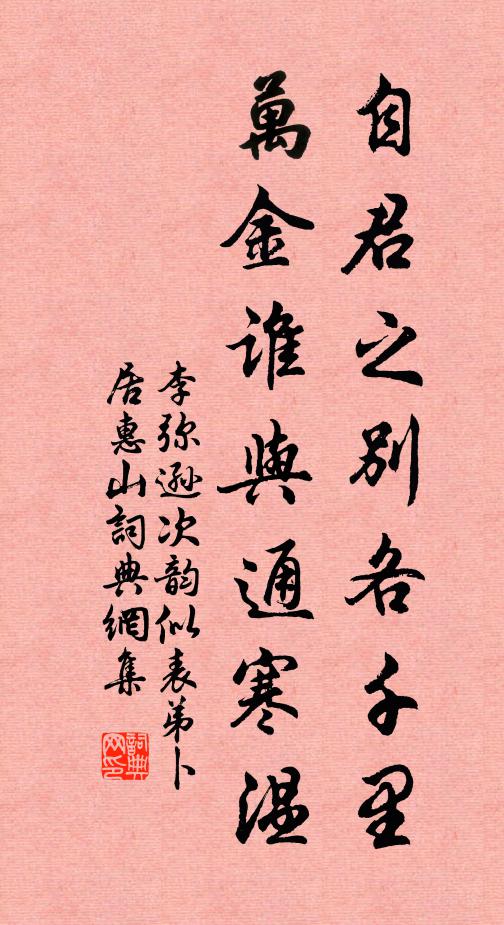 自君之别各千里
萬金誰與通寒温
李弥遜次韵似表弟卜
居惠山詞典網集
詞典
网印